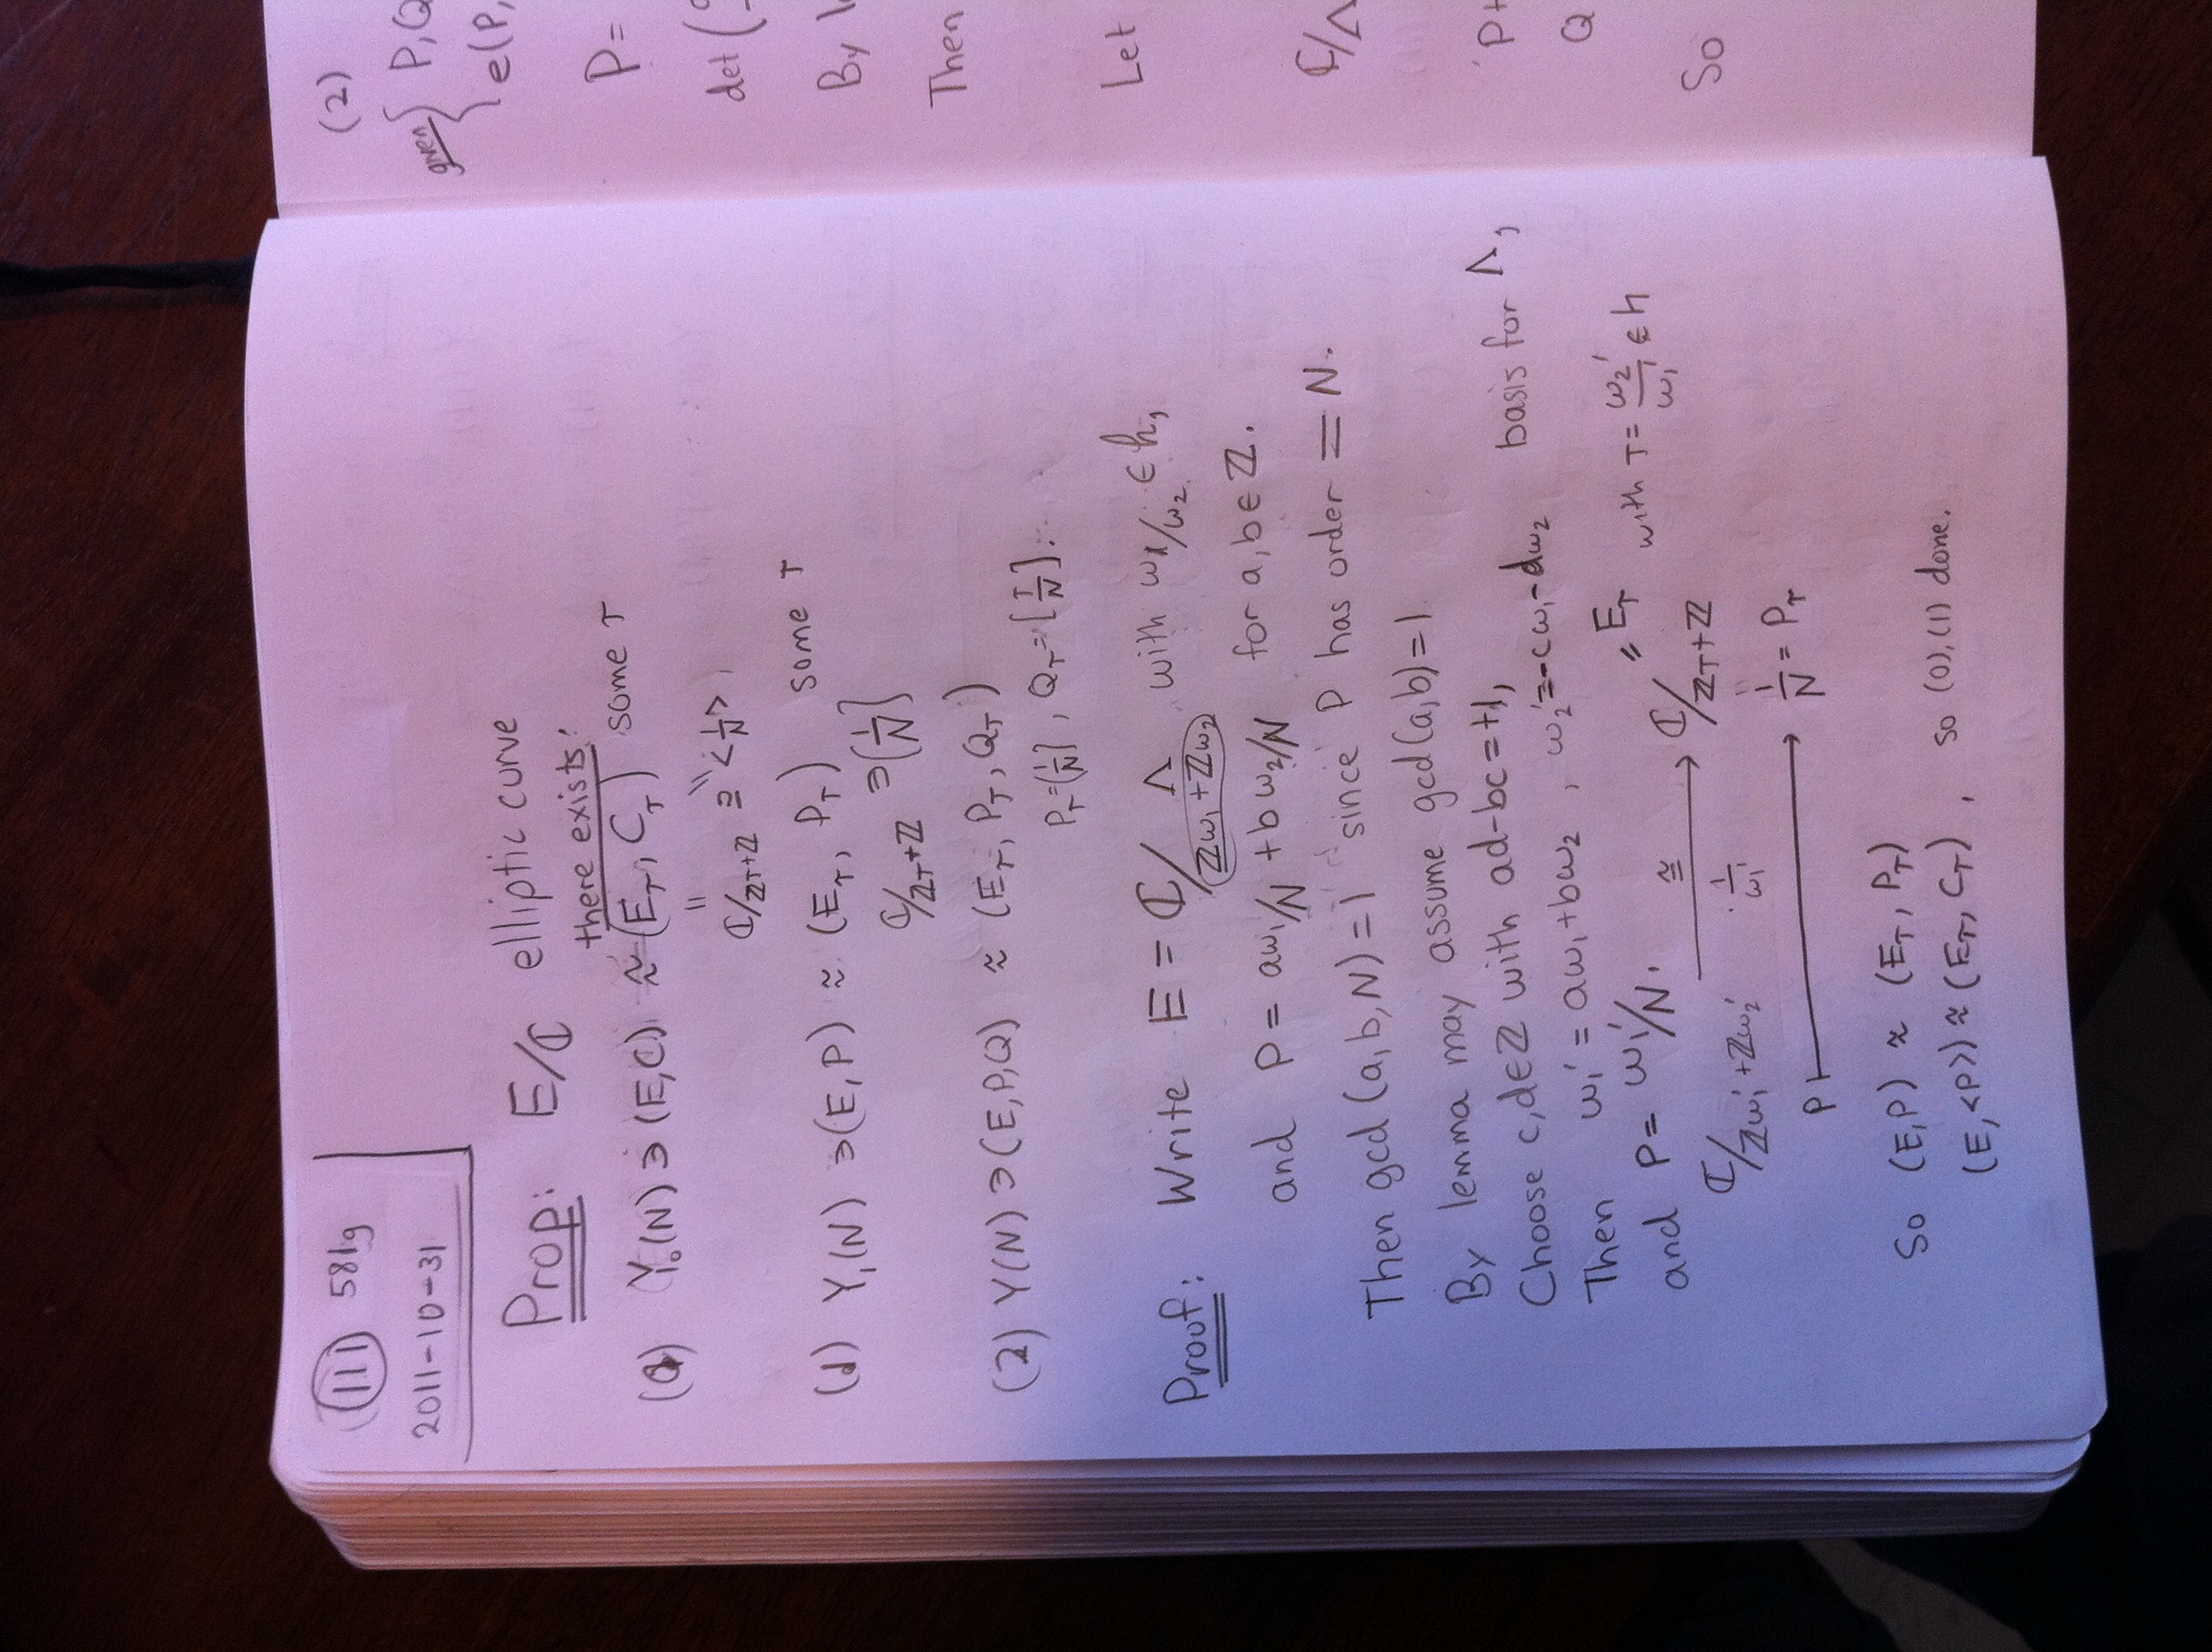 (111) 581g
2011-10-31
Prop: E/ℂ elliptic curve
there exists:
(0) Y₀(N) ∋ (E,C) ≈ (E_τ, C_τ) some τ
ℂ/ℤτ+ℤ ⊇ <1/N>
(1) Y₁(N) ∋ (E,P) ≈ (E_τ, P_τ) some τ
ℂ/ℤτ+ℤ ∋ [1/N]
(2) Y(N) ∋ (E,P,Q) ≈ (E_τ, P_τ, Q_τ)
P_τ=[1/N], Q_τ=[τ/N].
Proof: Write E = ℂ/Λ with ω₁/ω₂ ∈ h,
ℤω₁+ℤω₂
and P = aω₁/N + bω₂/N for a,b ∈ ℤ.
Then gcd(a,b,N)=1 since P has order = N.
By lemma may assume gcd(a,b)=1
Choose c,d∈ℤ with ad-bc=+1,
Then ω₁' = aω₁+bω₂, ω₂'=-cω₁-dω₂ basis for Λ,
and P = ω₁'/N.
" E_τ with τ = ω₂'/ω₁' ∈ h
ℂ/ℤω₁'+ℤω₂' ≅ ⟶ ℂ/ℤτ+ℤ
· 1/ω₁'
P ⟼ 1/N = P_τ
So (E,P) ≈ (E_τ, P_τ)
(E,<P>) ≈ (E_τ, C_τ), so (0),(1) done.
(2)
given { P,Q
e(P,
P =
det (
By l
Then
Let
ℂ/Λ
P ↦
Q
So